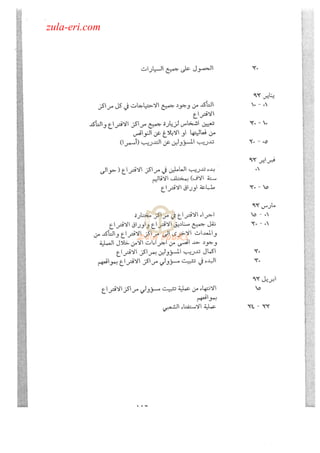 zula-eri.com
٣٠ الحصول على جميع السيارات
يناير ٩٣
٠١ - ١٠ التأكد من وجود جميع الاحتياجات في كل مراكز
الاقتراع
١٠ - ٣٠ تعيين اشخاص لزيارة جميع مراكز الاقتراع والتأكد
من فعاليتها او الابلاغ عن النواقص
٠٥ - ٢٠ تدريب المسؤولين عن التدريب (أسمرا)
فبراير ٩٣
٠١ بدء تدريب العاملين في مراكز الاقتراع ( حوالى
ستة الاف) بمختلف الاقاليم
١٥ - ٣٠ طباعة اوراق الاقتراع
مارس ٩٣
٠١ - ١٥ اجراء الاقتراع في مراكز مختارة
٠١ - ٣٠ نقل جميع صناديق الاقتراع واوراق الاقتراع
والمعدات الاخرى الى مراكز الاقتراع والتأكد من
وجود حد اقصى من اجراءات الامن خلال العملية
٣٠ اكمال تدريب المسؤولين بمراكز الاقتراع
٣٠ البدء في تثبيت مسؤولي مراكز الاقتراع بمواقعهم
ابريل ٩٣
١٥ الانتهاء من عملية تثبيت مسؤولي مراكز الاقتراع
بمواقعهم
٢٣ - ٢٤ عملية الاستفتاء الشعبي